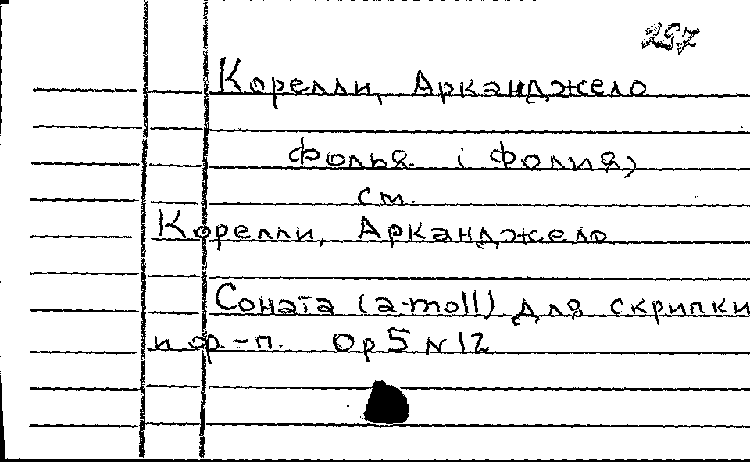 257
Корелли, Арканджело
Фолья (Фолия)
см.
Корелли, Арканджело
Соната (a-moll) для скрипки
и ф-п. Op 5 N 12